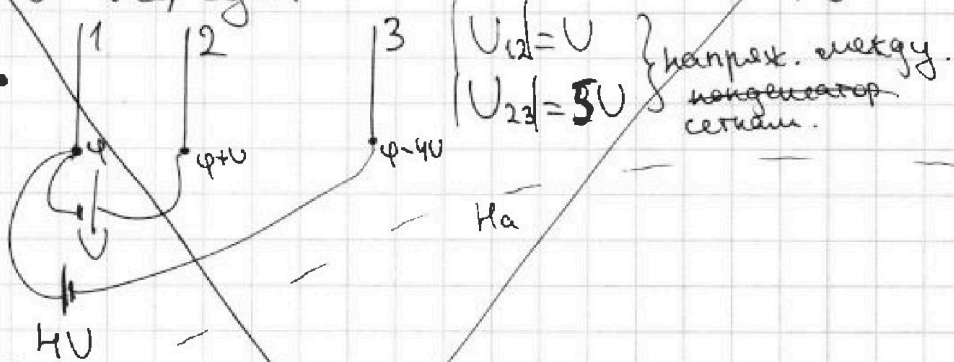 1 2 3
|U₁₂| = U
|U₂₃| = 5U
напряж. между.
конденсатор
сеткам.
φ φ+U φ-4U
U
На
4U